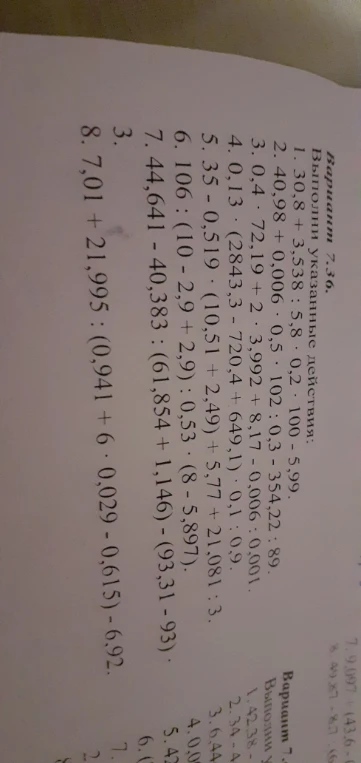 Вариант 7.36.
Выполни указанные действия:
1. 30,8 + 3,538 : 5,8 · 0,2 · 100 - 5,99.
2. 40,98 + 0,006 · 0,5 · 102 : 0,3 - 354,22 : 89.
3. 0,4 · 72,19 + 2 · 3,992 + 8,17 - 0,006 : 0,001.
4. 0,13 · (2843,3 - 720,4 + 649,1) · 0,1 : 0,9.
5. 35 - 0,519 · (10,51 + 2,49) + 5,77 + 21,081 : 3.
6. 106 : (10 - 2,9 + 2,9) : 0,53 · (8 - 5,897).
7. 44,641 - 40,383 : (61,854 + 1,146) - (93,31 - 93) ·
3.
8. 7,01 + 21,995 : (0,941 + 6 · 0,029 - 0,615) - 6,92.
7. 9,097 + (43,6 -
Вариант 7.
Выполни
1. 42,38 -
2. 34 - 4
3. 6,44
5. 42
6. (
7.